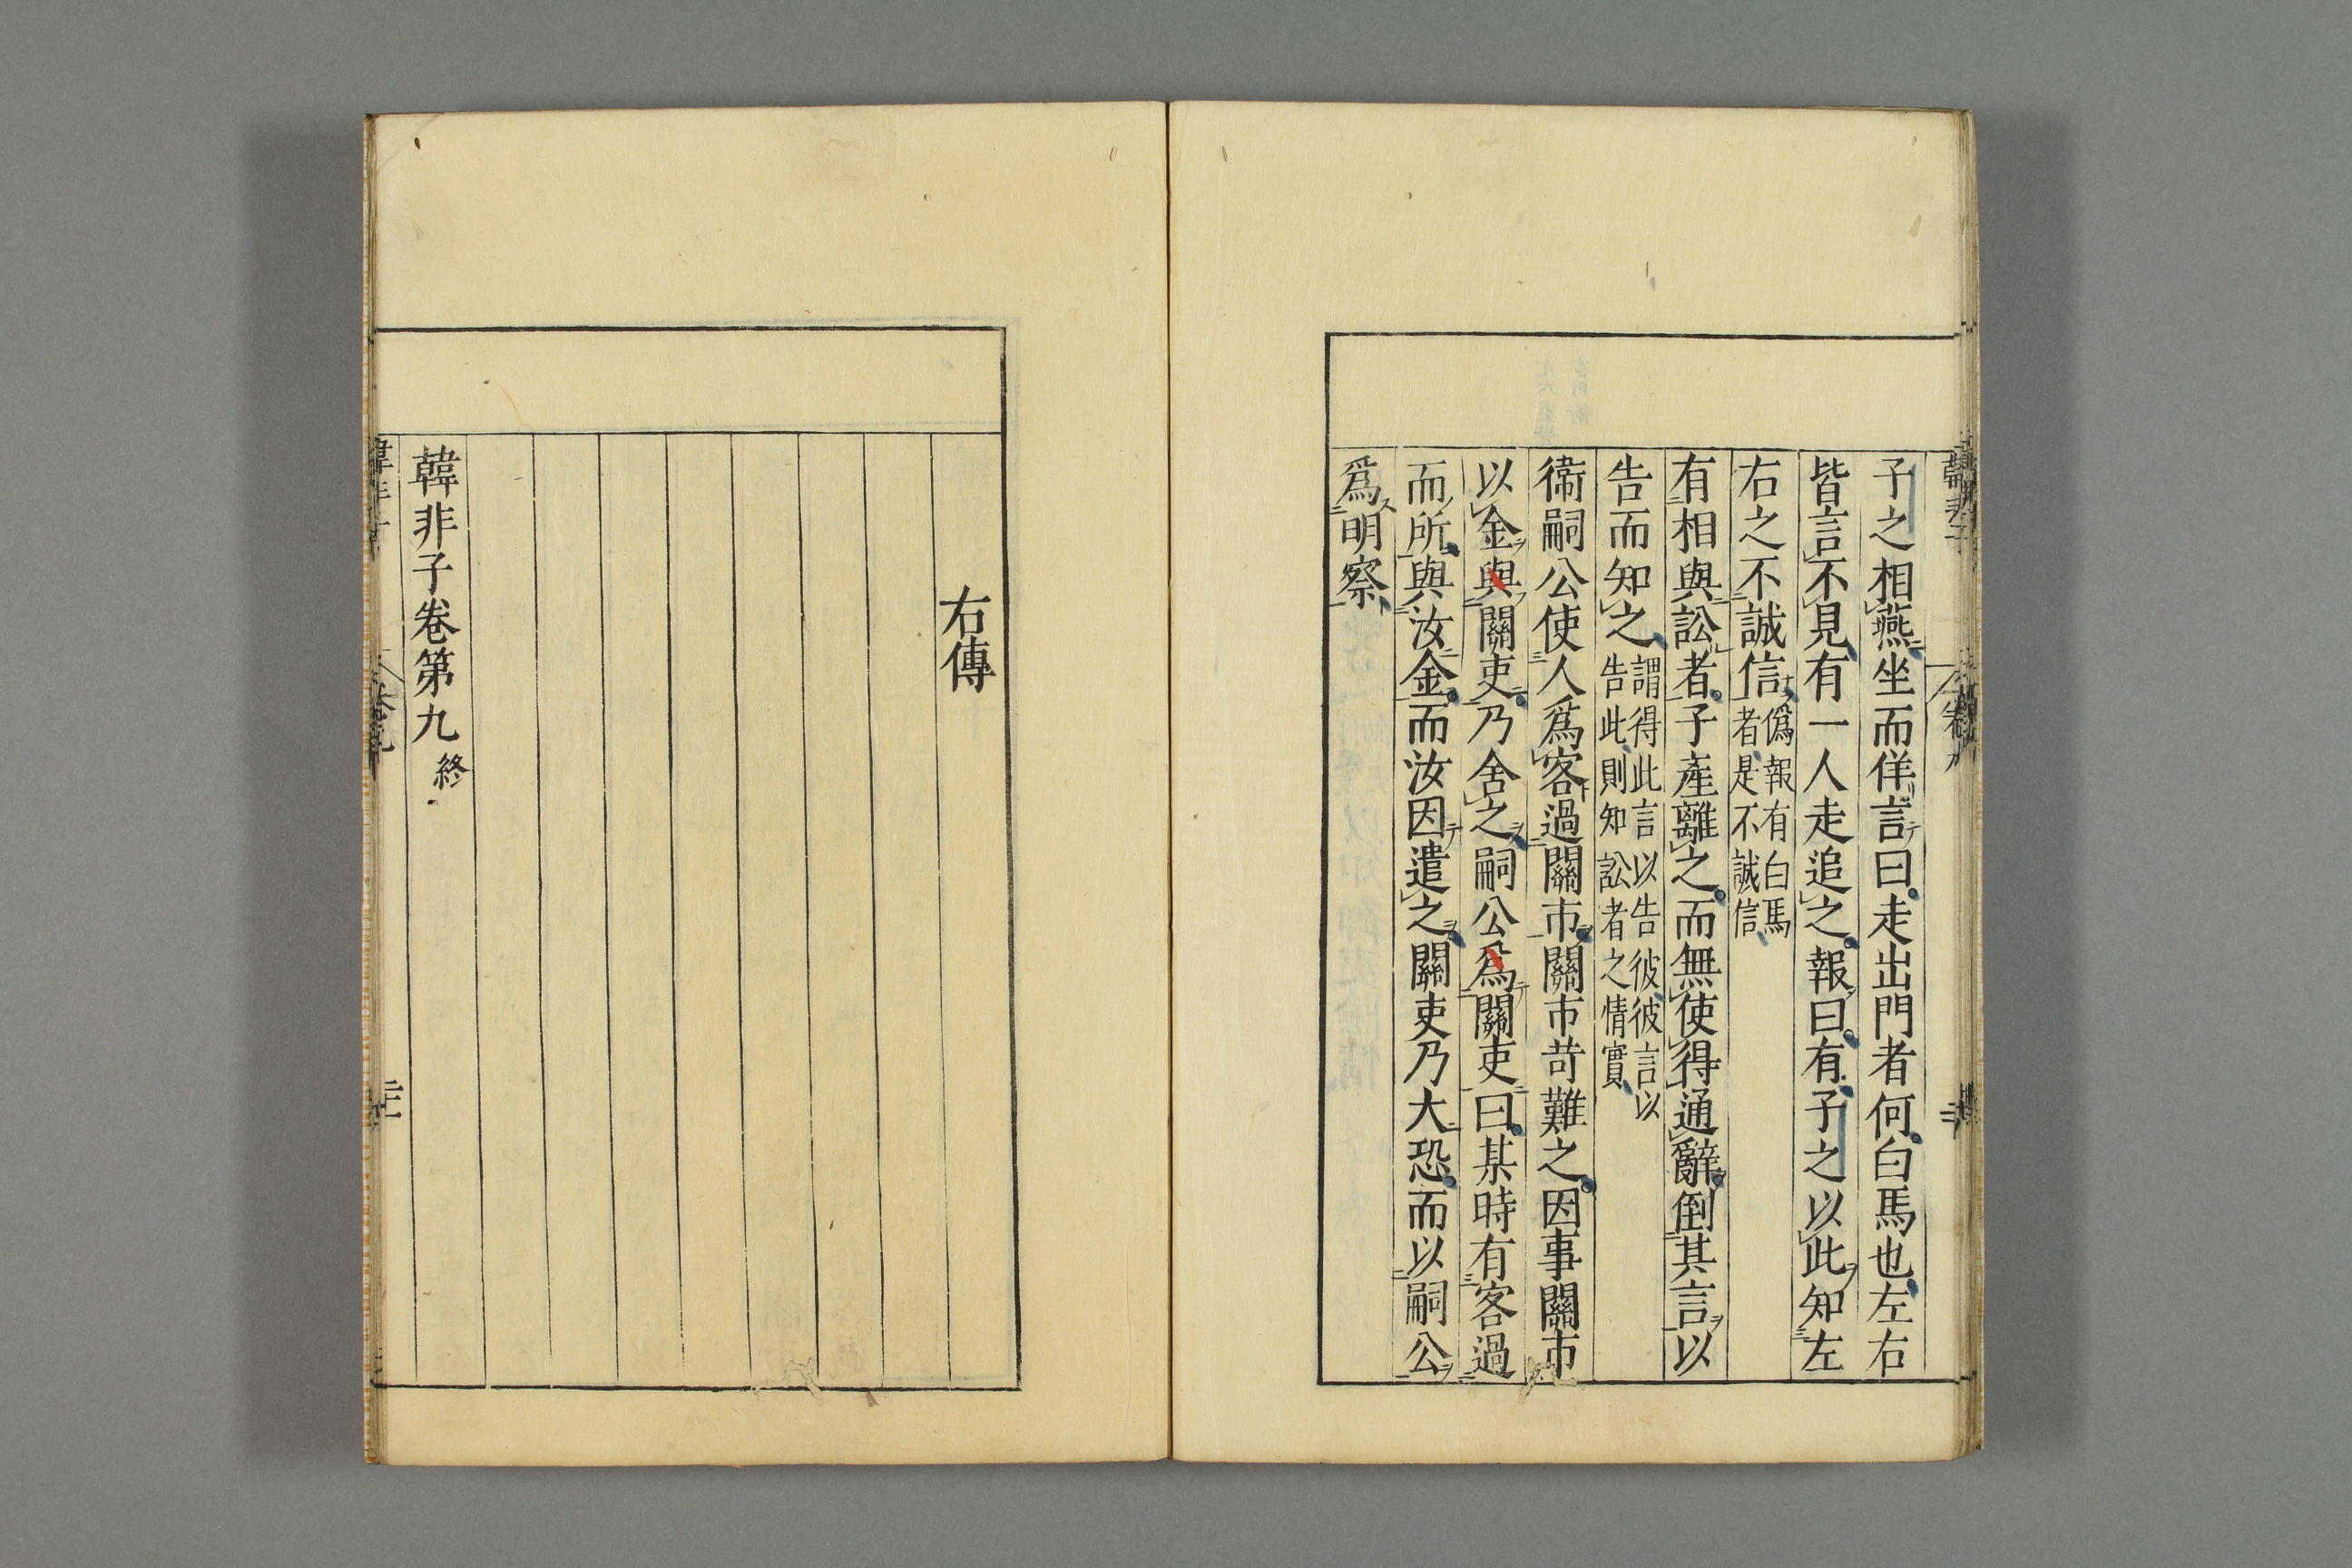 子之相燕坐而佯言曰走出門者何白馬也左右
皆言不見有一人走追之報曰有子之以此知左
右之不誠信
僞報有白馬
者是不誠信
有相與訟者子產離之而無使得通辭倒其言以
告而知之
謂得此言以告彼彼言以
告此則知訟者之情實
衛嗣公使人爲客過關市關市苛難之因事關市
以金與關吏乃舍之嗣公爲關吏曰某時有客過
而所與汝金而汝因遣之關吏乃大恐而以嗣公
爲明察
右傳
韓非子卷第九終